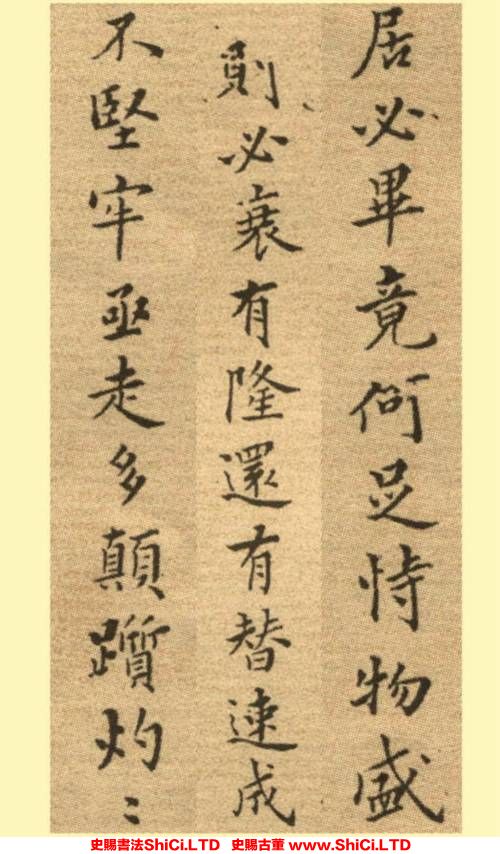 居必畢竟何足恃物盛
則必衰有隆還有替速成
不堅牢亟走多顛躓灼〻
史賜書法ShiCi.LTD 史賜古董 www.ShiCi.LTD